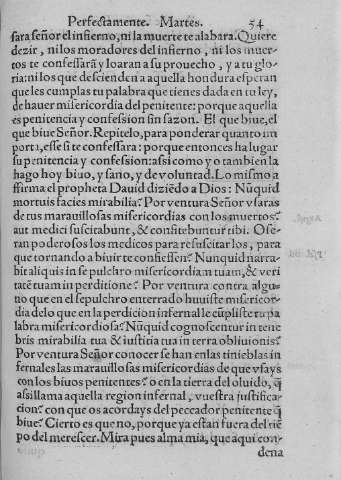 Perfectamente. Martes. 54
sara señor el infierno, ni la muerte te alabara. Quiere
dezir, ni los moradores del infierno, ni los muer-
tos te confessarã y loaran a su prouecho, y a tu glo-
ria: ni los que descienden a aquella hondura esperan
que les cumplas tu palabra que tienes dada en tu ley,
de hauer misericordia del penitente: porque aquella
es penitencia y confession sin sazon. El que biue, el
que biue Señor. Repitelo, para ponderar quanto im
porta, esse si te confessara: porque entonces ha lugar
su penitencia y confession: assi como yo tambien la
hago hoy biuo, y sano, y de voluntad. Lo mismo a
ffirma el propheta Dauid diziẽdo a Dios: Nũquid
mortuis facies mirabilia? Por ventura Señor vsaras
de tus marauillosas misericordias con los muertos?
aut medici suscitabunt, & confitebuntur tibi. O se-
ran poderosos los medicos para resuscitarlos, para
que tornando a biuir te confiessen? Nunquid narra-
bit aliquis in sepulchro misericordiam tuam, & veri
tatẽ tuam in perditione? Por ventura contra algu-
no que en el sepulchro enterrado huuiste misericor-
dia del o que en la perdicion infernal le cũpliste tu pa
labra misericordiosa? Nũquid cognoscentur in tene
bris mirabilia tua & iustitia tua in terra obliuionis?
Por ventura Señor conocer se han en las tinieblas in
fernales las marauillosas misericordias de que vsays
con los biuos penitentes? o en la tierra del oluido, q̃
assi llama aquella region infernal, vuestra justifica-
cion? con que os acordays del peccador penitente q̃
biue? Cierto es que no, porque ya estan fuera del tiẽ
po del merescer. Mira pues alma mia, que aqui con-
dena